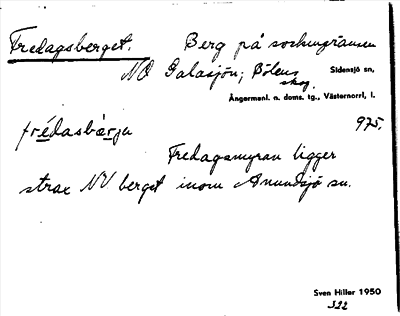 Fredagsberget. Berg på sockengränsen
NO Galasjön; Bölens
skog. Sidensjö sn,
Ångermanl. n. doms. tg., Västernorrl, l.
frédasbärja 975.
Fredagsmyran ligger
strax NV berget inom Anundsjö sn.
Sven Hiller 1950
322